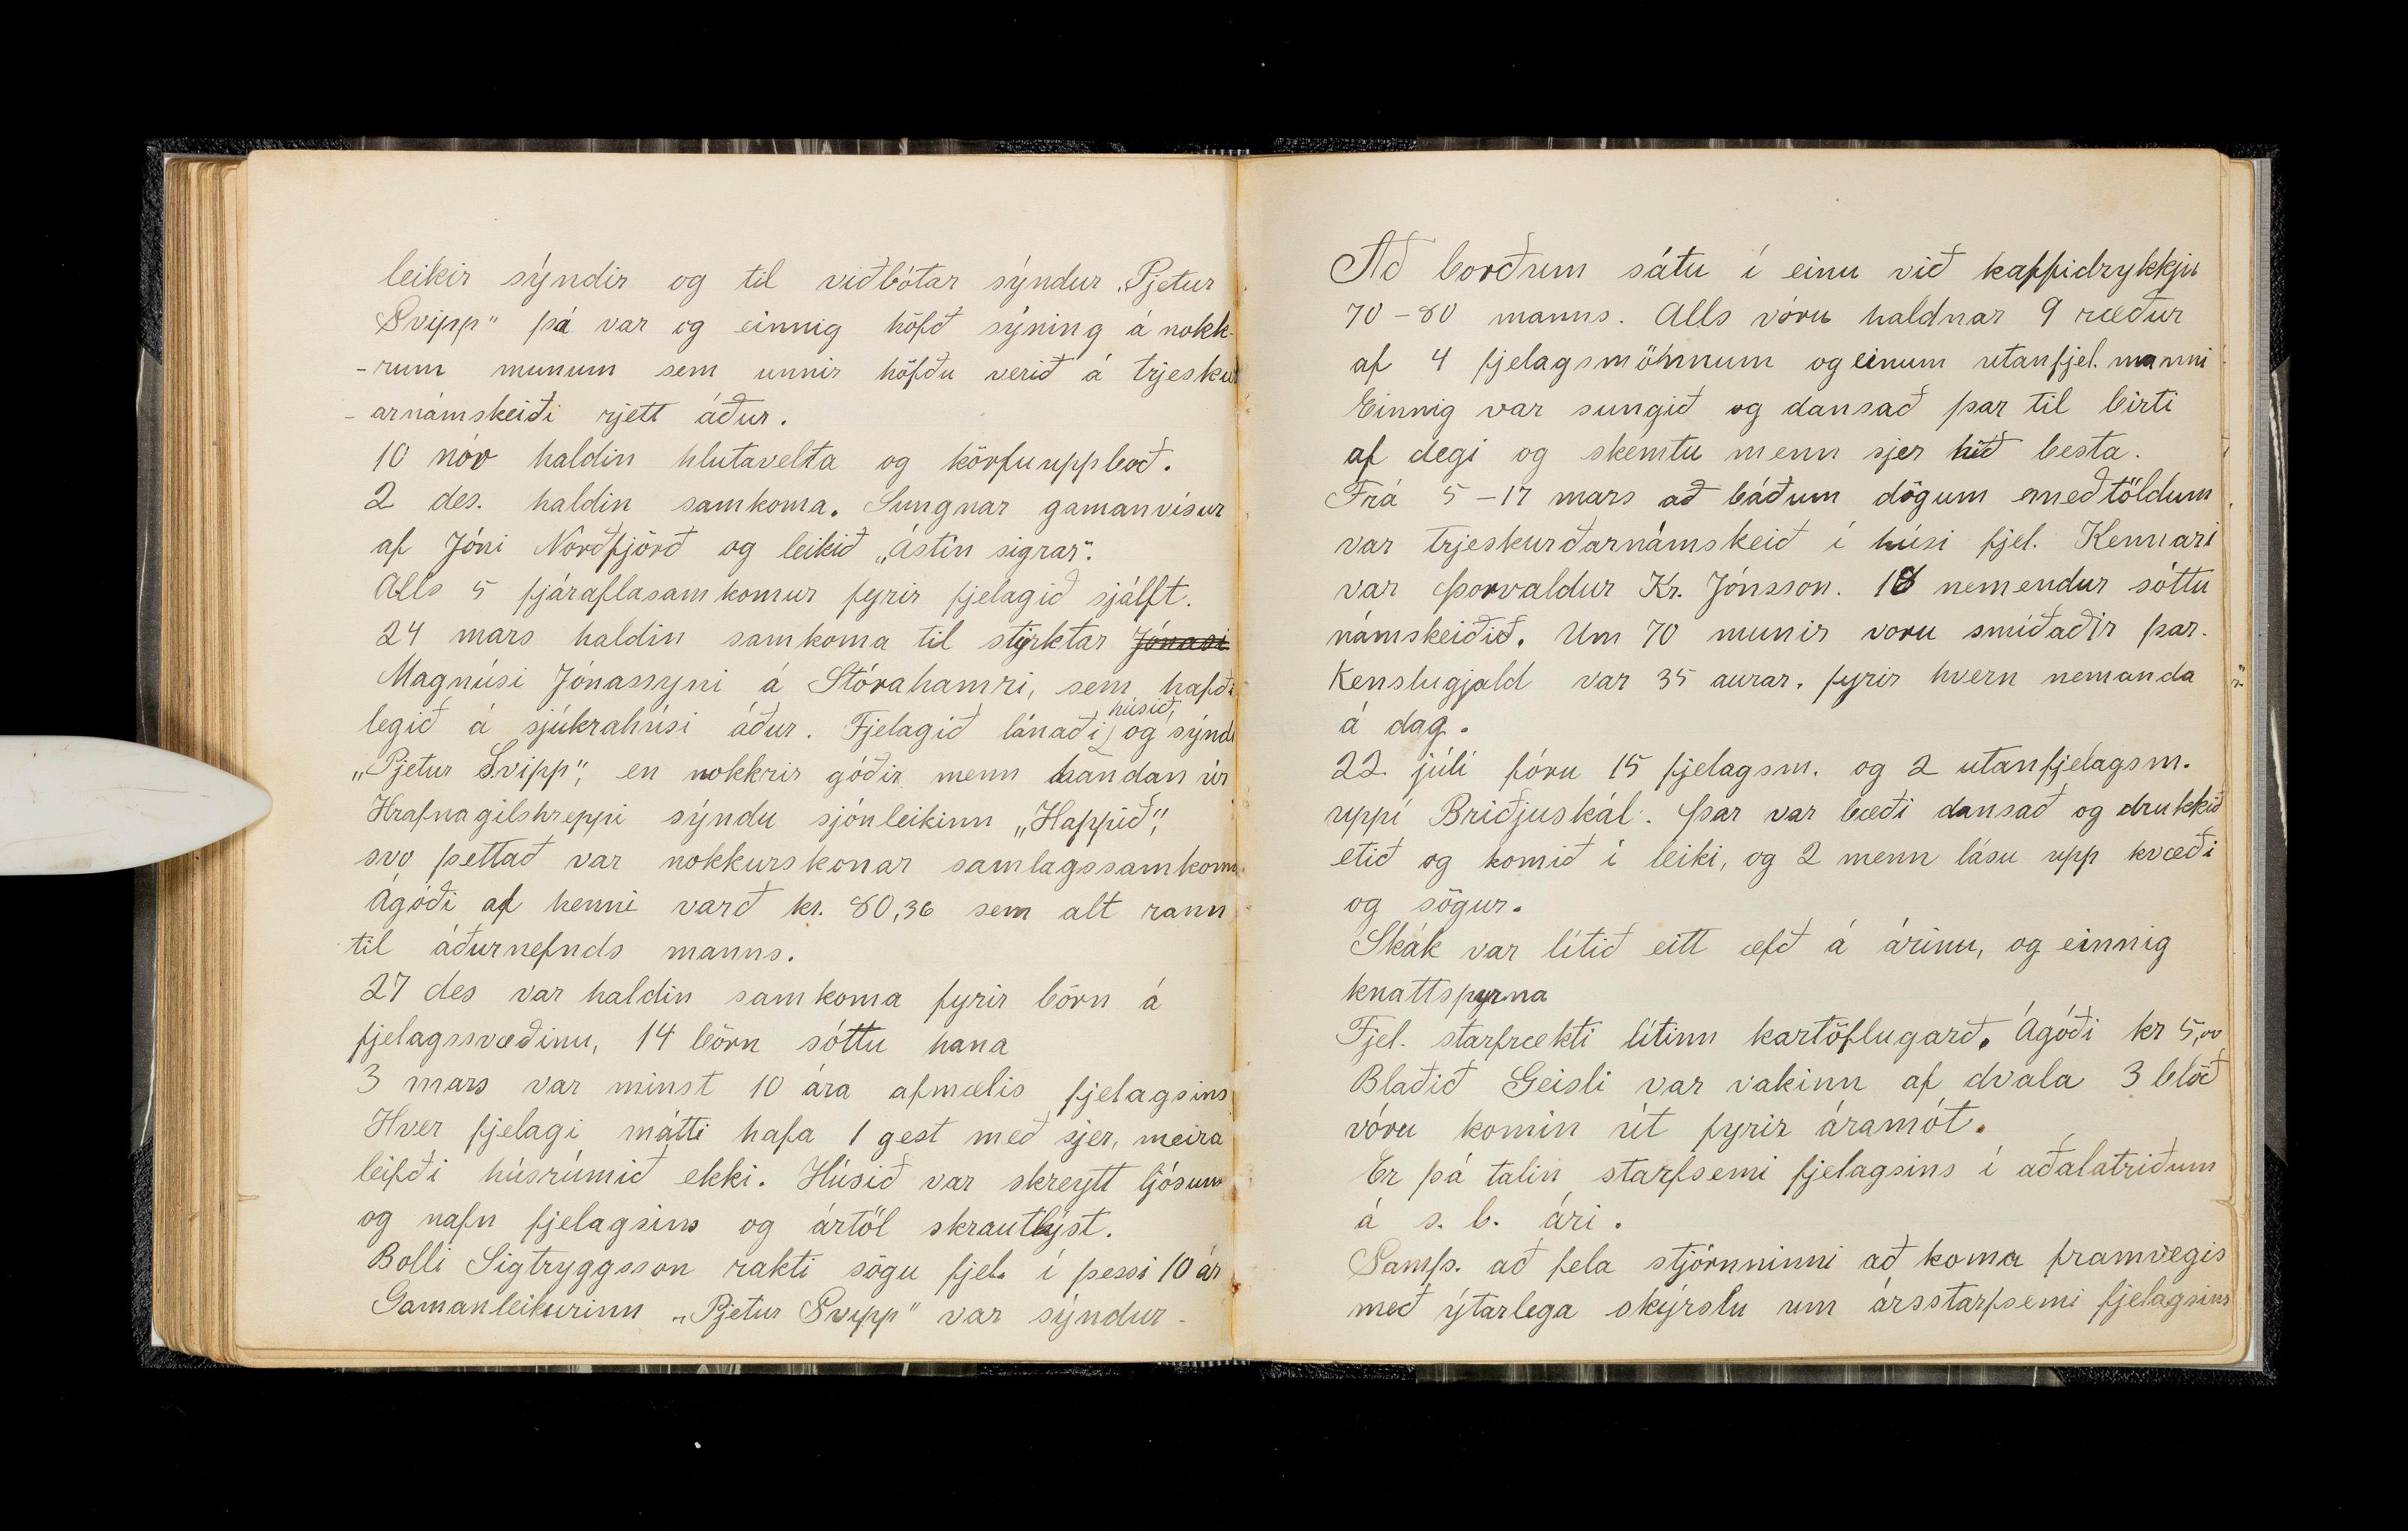 leikir sýndir og til viðbótar sýndur „Pjetur
Svipp" þá var og einnig höfð sýning á nokk-
-rum munum sem unnir höfðu verið á trjesku
-arnámskeiði rjett áður.
10 nóv haldin hlutavelta og körfuuppboð.
2 des. haldin samkoma. Sungnar gamanvísur
af Jóni Norðfjörð og leikið „Ástin sigrar".
Alls 5 fjáraflasamkomur fyrir fjelagið sjálft.
24 mars haldin samkoma til styrktar Jónasi
Magnúsi Jónassyni á Stórahamri, sem hafði
legið á sjúkrahúsi áður. Fjelagið lánaði húsið, og sýndi
„Pjetur Svipp", en nokkrir góðir menn handan úr
Hrafnagilshreppi sýndu sjónleikinn „Happið",
svo þettað var nokkurskonar samlagssamkoma
Ágóði af henni varð kr. 80,36 sem alt rann
til áðurnefnds manns.
27 des var haldin samkoma fyrir börn á
fjelagssvæðinu, 14 börn sóttu hana
3 mars var minst 10 ára afmælis fjelagsins
Hver fjelagi mátti hafa 1 gest með sjer, meira
leifði húsrúmið ekki. Húsið var skreytt ljósum
og nafn fjelagsins og ártöl skrautlýst.
Bolli Sigtryggsson rakti sögu fjel. í þessi 10 ár
Gamanleikurinn „Pjetur Svipp" var sýndur -
Að borðum sátu í einu við kaffidrykkju
70-80 manns. Alls vóru haldnar 9 ræður
af 4 fjelagsmönnum og einum utanfjel. manni
Einnig var sungið og dansað þar til birti
af degi og skemtu menn sjer hið besta.
Frá 5-17 mars að báðum dögum meðtöldum
var trjeskurðarnámskeið í húsi fjel. Kennari
var Þorvaldur Kr. Jónsson. 18 nemendur sóttu
námskeiðið. Um 70 munir voru smíðaðir þar.
Kenslugjald var 35 aurar. fyrir hvern nemanda
á dag.
22 júlí fóru 15 fjelagsm. og 2 utanfjelagsm.
uppí Briðjuskál. Þar var bæði dansað og drukkið
etið og komið í leiki, og 2 menn lásu upp kvæði
og sögur.
Skák var lítið eitt æfð á árinu, og einnig
knattspyrna
Fjel. starfrækti lítinn kartöflugarð. Ágóði kr 5,00
Blaðið Geisli var vakinn af dvala 3 blöð
vóru komin út fyrir áramót.
Er þá talin starfsemi fjelagsins í aðalatriðum
á s. l. ári.
Samþ. að fela stjórnninni að koma framvegis
með ýtarlega skýrslu um ársstarfsemi fjelagsins